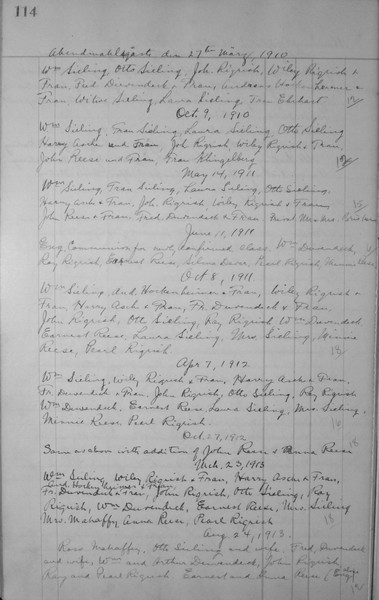 114
Abendmahlsgäste den 27th März, 1910
Wm Sieling, Otto Sieling, Joh. Rigrish, Wiley Rigrish &
Frau, Fred Duvendeck & Frau,
Frau, Sieling, Laura Sieling, Frau Ehrhart
Oct. 9, 1910
Wm Sieling, Frau Sieling, Laura Sieling, Otto Sieling
Harry Asche und Frau, Joh Rigrish Wiley Rigrish & Frau,
John Reese und Frau, Frau Klingelberg
May 14, 1911
Wm Sieling, Frau Sieling, Laura Sieling, Otto Sieling,
Harry Asch & Frau, Joh. Rigrish Wiley Rigrish & Frau,
John Reese & Frau, Fred Duvendeck & Frau
June 18, 1911
Eng. Communion for newly confirmed class, Wm Duvendeck,
Ray Rigrish, Earnest Reese, Pearl Rigrish
Oct 8, 1911
Wm Sieling, & Frau, Wiley Rigrish &
Frau, Harry Asch & Frau, Fr. Duvendeck & Frau,
John Rigrish, Otto Sieling, Ray Rigrish, Wm Duvendeck
Earnest Reese, Laura Sieling, Mrs. Sieling, Minnie
Reese, Pearl Rigrish
Apr 7, 1912
Wm Sieling, Wiley Rigrish & Frau, Harry Asch & Frau,
Fr. Duvendeck & Frau, John Rigrish, Otto Sieling, Ray Rigrish
Wm Duvendeck, Earnest Reese, Laura Sieling, Mrs. Sieling,
Minnie Reese, Pearl Rigrish.
Oct. 27, 1912
Same as above with addition of John Reese & Anna Reese
Mch. 23, 1913
Wm Sieling, Wiley Rigrish & Frau, Harry Asch & Frau,
Fr. Duvendeck & Frau, John Rigrish, Otto Sieling, Ray
Rigrish, Wm Duvendeck, Earnest Reese, Mrs. Sieling
Mrs. Mahaffy, Anna Reese, Pearl Rigrish
Aug. 24, 1913.
Ross Mahaffy, Otto Sieling and wife, Fred. Duvendeck
and wife, Wm and Arthur Duvendeck, John Rigrish,
Ray and Pearl Rigrish, Earnest and Anna Reese